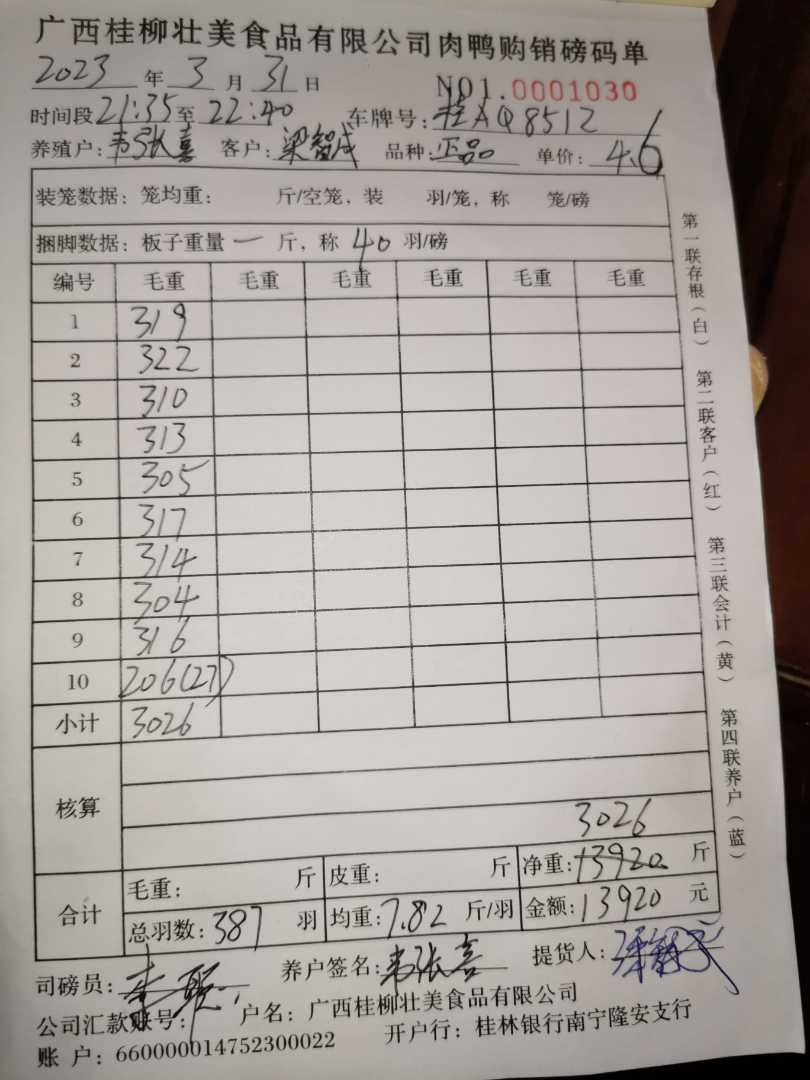 广西桂柳壮美食品有限公司肉鸭购销磅码单
2023 年 3 月 31 日 NO1.0001030
时间段 21:35 至 22:40 车牌号: 桂AQ8512
养殖户: 韦张喜 客户: 梁智成 品种: 正品 单价: 4.6
装笼数据: 笼均重: 斤/空笼, 装 羽/笼, 称 笼/磅
捆脚数据: 板子重量 一 斤, 称 40 羽/磅
编号 毛重 毛重 毛重 毛重 毛重 毛重
1 319
2 322
3 310
4 313
5 305
6 317
7 314
8 304
9 316
10 206(27)
小计 3026
核算
3026
合计 毛重: 斤 皮重: 斤 净重: 13920 斤
总羽数: 387 羽 均重: 7.82 斤/羽 金额: 13920 元
司磅员: 养户签名: 韦张喜 提货人:
公司汇款账号: 户名: 广西桂柳壮美食品有限公司
账 户: 660000014752300022 开户行: 桂林银行南宁隆安支行
第一联存根(白) 第二联客户(红) 第三联会计(黄) 第四联养户(蓝)